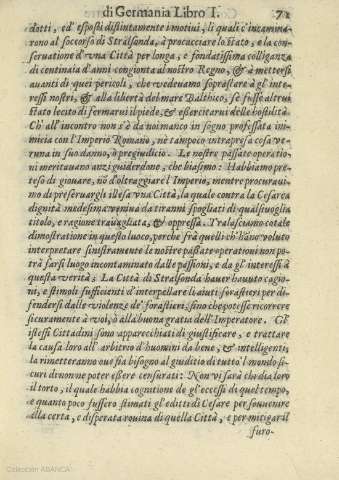 di Germania Libro I. 71
dotti, ed' esposti distintamente i motiui, li quali c'incamina
rono al soccorso di Stralsonda, à procacciare lo stato, e la con
seruatione d'vna Città per longa, e fondatissima colliganza
di centinaia d'anni congionta al nostro Regno, & à mettersi
auanti di quei pericoli, che vedeuamo soprastare à gl'inte
ressi nostri, & alla libertà del mare Balthico, se fusse altrui
stato lecito di fermarui il piede, & esercitarui delle hostilità.
Ch' all'incontro non s'è da noi manco in sogno professata ini
micia con l'Imperio Romano, nè tampoco intrapresa cosa ve
runa in suo danno, ò pregiudicio. Le nostre passate operatio
ni meritauano anzi guiderdone, che biasimo: Habbiamo pre
teso di giouare, nõ d'oltraggiare l'Imperio, mentre procuraui
mo di preseruargli illesa vna Città, la quale contra la Cesarea
dignità medesima veniua da tiranni spogliati di qualsiuoglia
titolo, e ragione trauagliata, & oppressa. Tralasciamo cotale
dimostratione in questo luoco, perche frà quelli ch'hãno voluto
interpretare sinistramente le nostre passate operationi non po
trà farsi luogo incontaminato dalle passioni, e da gl'interessi à
questa verità; La Città di Stralsonda hauer hauuto cagio
ni, e stimoli sufficienti d'interpellare li aiuti forastieri per di-
fendersi dalle violenze de' forastieri, sino che potesse ricorrere
sicuramente à voi, ò alla buona gratia dell'Imperatore. Gl'
istessi Cittadini sono apparecchiati di giustificare, e trattare
la causa loro all' arbitrio d'huomini da bene, & intelligenti,
la rimetteranno oue sia bisogno al giuditio di tutto l' mondo si-
curi di non ne poter essere censurati: Non vi sarà chi dia loro
il torto, il quale habbia cognitione de gl'eccessi di quel tempo,
e quanto poco fussero stimati gl'editti di Cesare per souuenire
alla certa, e disperata rouina di quella Città, e per mitigar il
furo-
Colección ABANCA